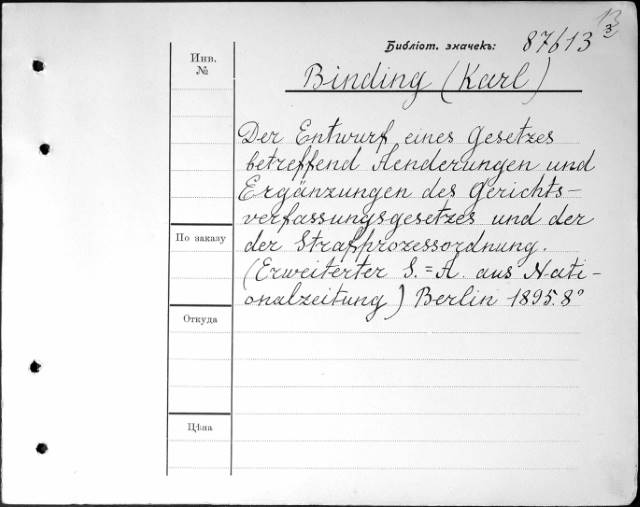 13
3
Библіот. значекъ: 87613
Инв.
№
Binding (Karl)
Der Entwurf eines Gesetzes
betreffend Aenderungen und
Ergänzungen des Gerichts-
verfassungsgesetzes und der
der Strafprozessordnung.
(Erweiterter S.=A. aus Nati-
onalzeitung) Berlin 1895. 8°
По заказу
Откуда
Цѣна